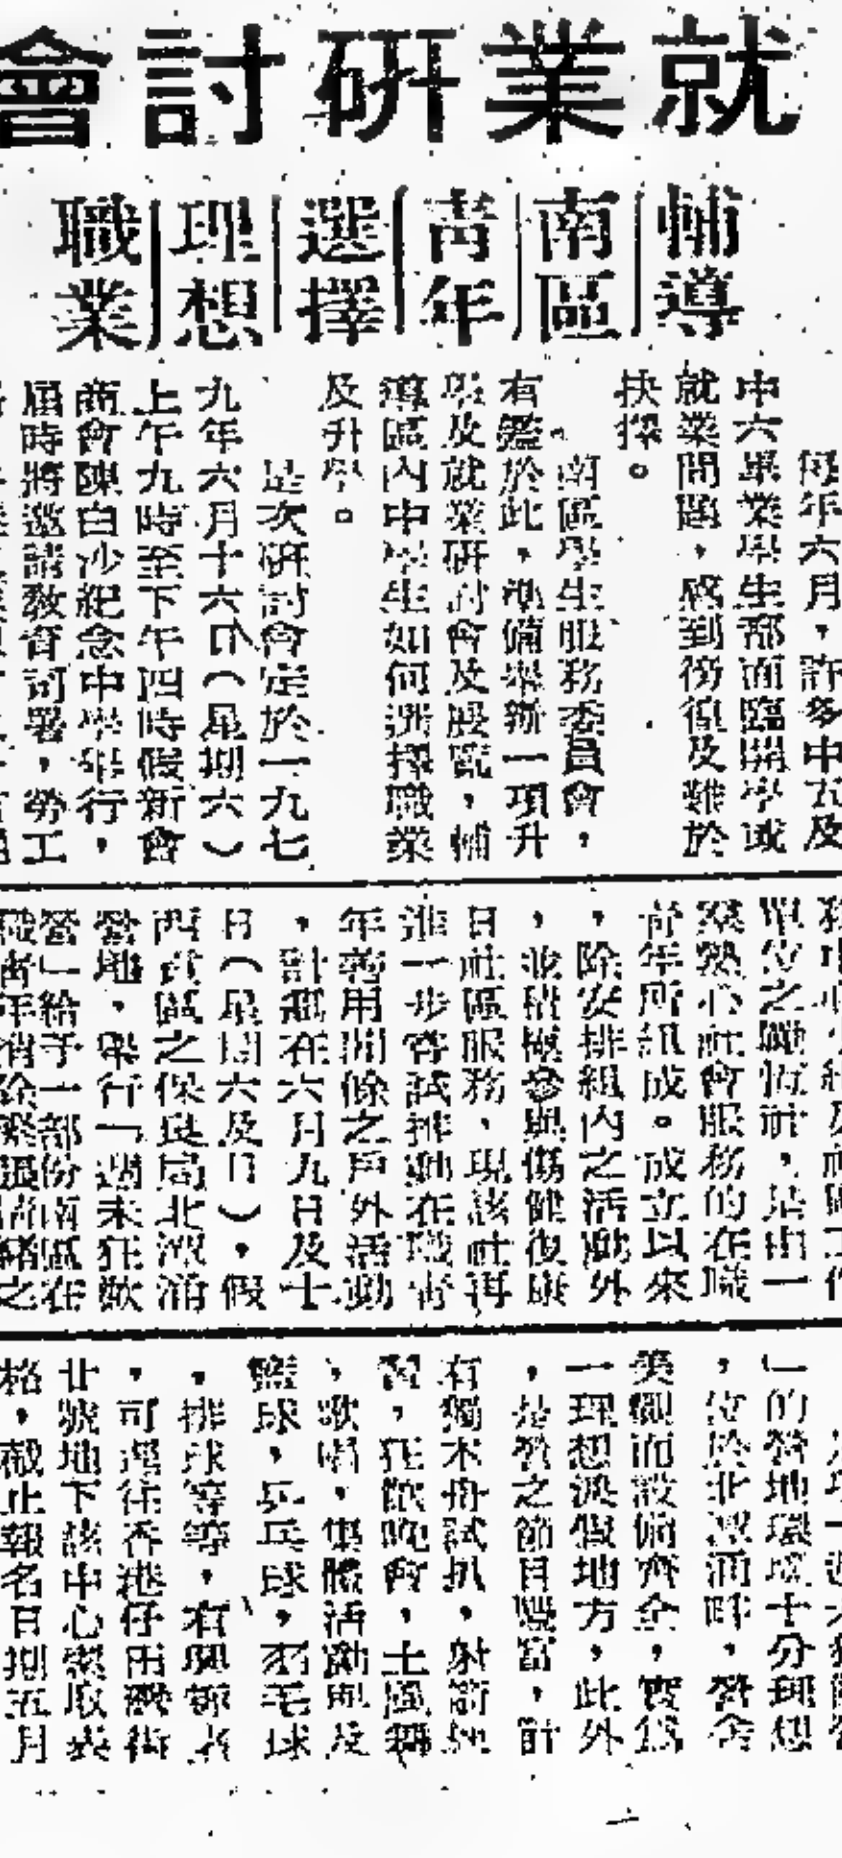 就業研討會
輔導
南區
青年
選擇
理想
職業
每年六月，許多中五及
中六畢業學生都面臨開學或
就業問題，感到徬徨及難於
抉擇。
南區學生服務委員會，
有鑑於此，準備舉辦一項升
學及就業研討會及展覽，輔
導區內中學生如何選擇職業
及升學。
是次研討會定於一九七
九年六月十六日（星期六）
上午九時至下午四時假新會
商會陳白沙紀念中學舉行，
屆時將邀請教育司署，勞工
單位之職恆社，是由一
羣熱心社會服務的在職
青年所組成。成立以來
，除安排組內之活動外
，並積極參與傷健復康
日社區服務，現該社再
進一步嘗試推動在職青
年善用閒餘之戶外活動
，計劃在六月九日及十
日（星期六及日），假
西貢區之保良局北潭涌
營地，舉行「週末狂歡
營」給予一部份南區在
職青年消除緊張情緒之
」的營地環境十分理想
，位於北潭涌畔，營舍
美觀而設備齊全，實為
一理想渡假地方，此外
，是營之節目豐富，計
有獨木舟試扒，射箭
習，狂歡晚會，土風舞
，歌唱，集體活動與及
籃球，乒乓球，羽毛球
，排球等等，有興趣者
，可逕往香港仔田灣街
廿號地下該中心索取表
格，截止報名日期五月